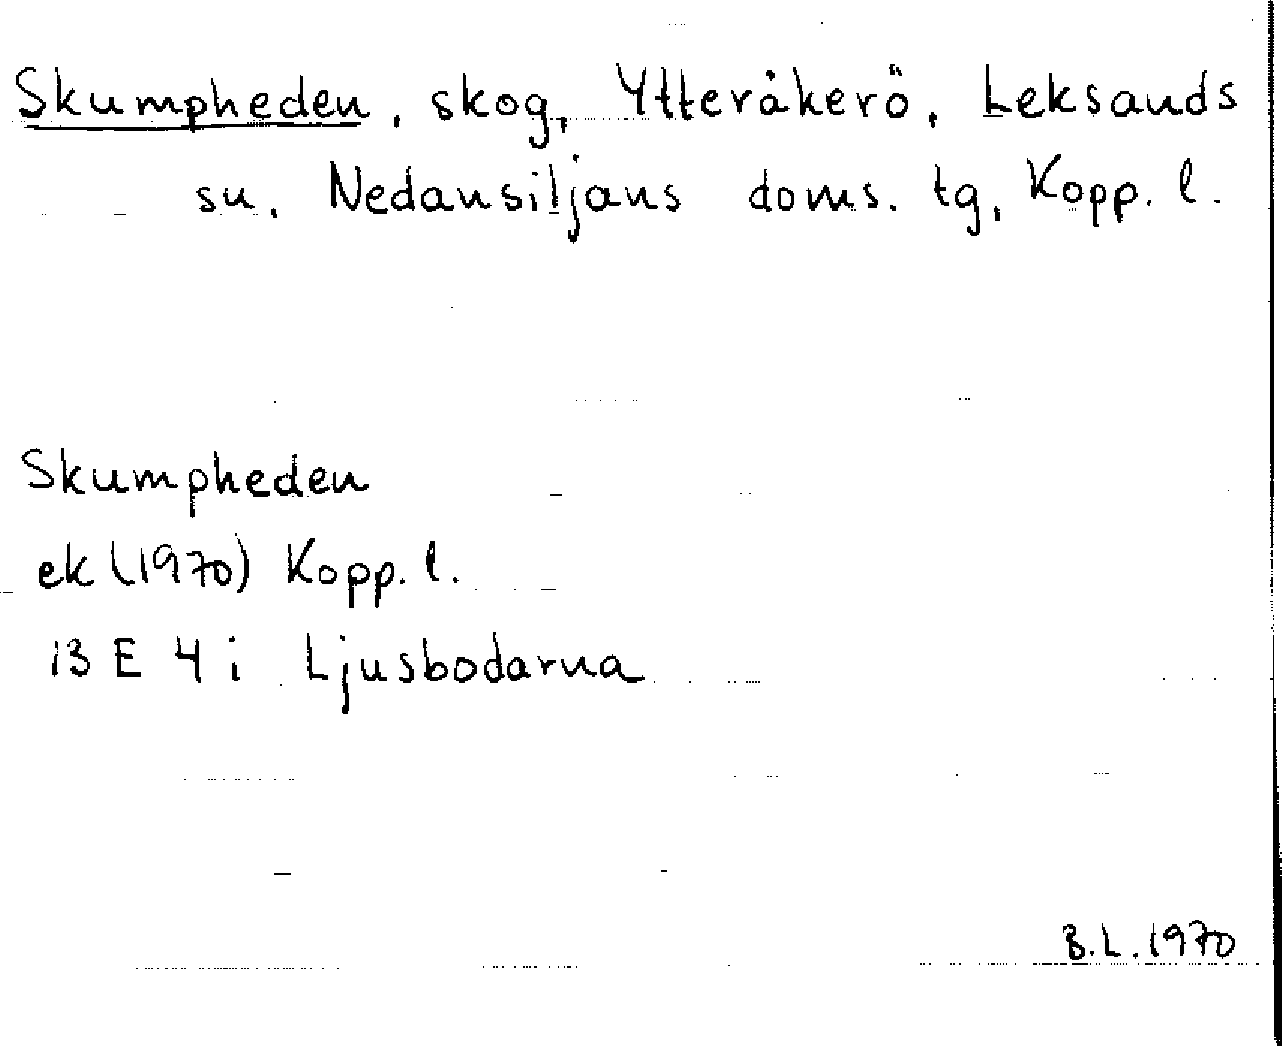 Skumpheden, skog, Ytteråkerö, Leksands
sn, Nedansiljans doms. tg, Kopp. l.
Skumpheden
ek (1970) Kopp. l.
13 E 4 i Ljusbodarna
B.L. 1970